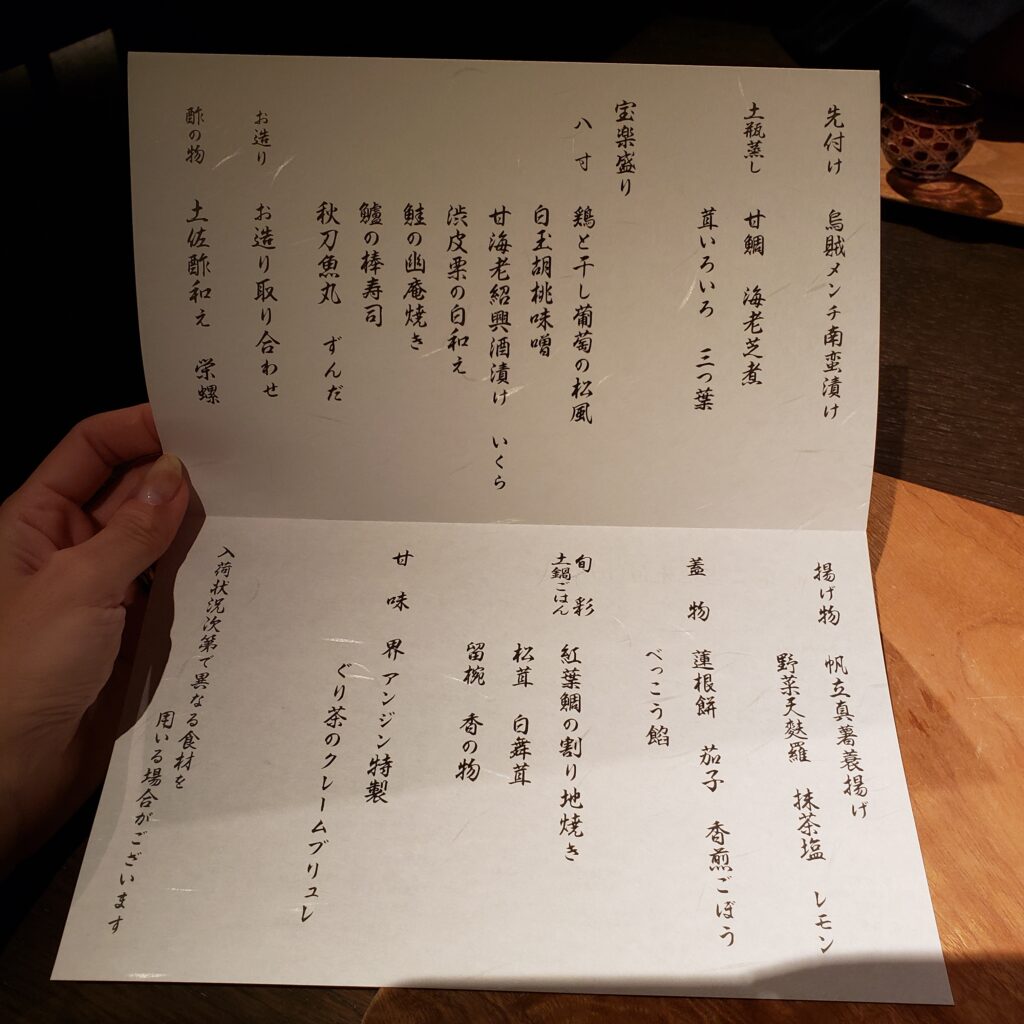 先付け 烏賊メンチ南蛮漬け
土瓶蒸し 甘鯛 海老芝煮
茸いろいろ 三つ葉
宝楽盛り
八寸 鶏と干し葡萄の松風
白玉胡桃味噌
甘海老紹興酒漬け いくら
渋皮栗の白和え
鮭の幽庵焼き
鱸の棒寿司
秋刀魚丸 ずんだ
お造り お造り取り合わせ
酢の物 土佐酢和え 栄螺
揚げ物 帆立真薯蓑揚げ
野菜天麩羅 抹茶塩 レモン
蓋物 蓮根餅 茄子 香煎ごぼう
べっこう餡
旬彩 紅葉鯛の割り地焼き
土鍋ごはん 松茸 白舞茸
留椀 香の物
甘味 界 アンジン特製
ぐり茶のクレームブリュレ
入荷状況次第で異なる食材を
用いる場合がございます